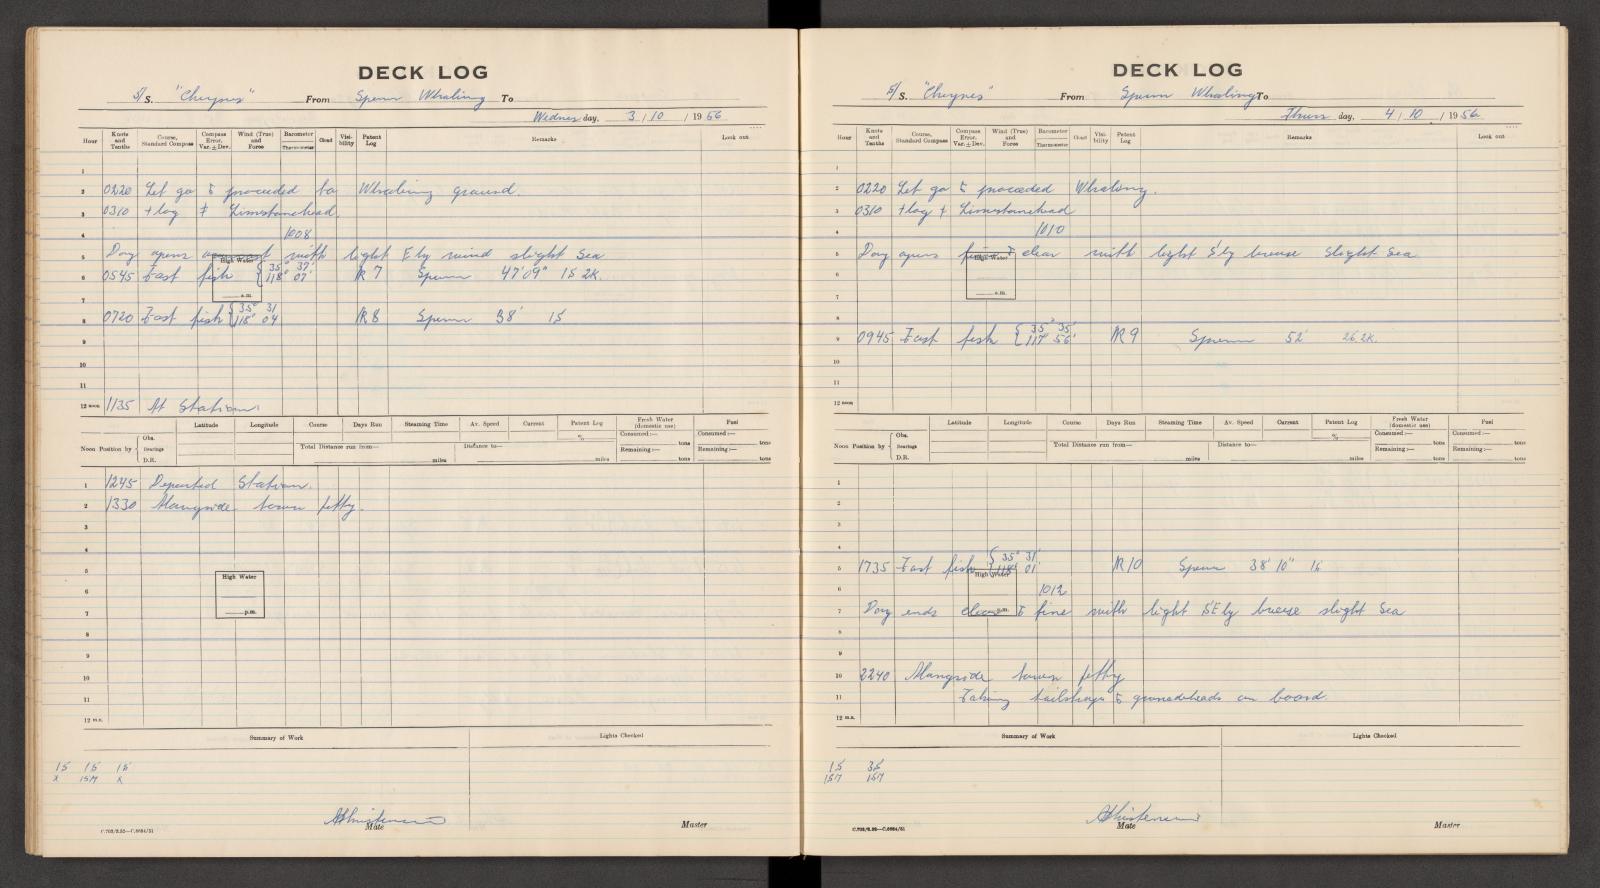 DECK LOG
S/S. "Cheynes" From Sperm Whaling To
Wednes day, 3/10/1956
Hour Knots and Tenths Course, Standard Compass Compass Error, Var. ± Dev. Wind (True) and Force Barometer Thermometer Cloud Visibility Patent Log Remarks Look out
1
2 0220 Let go & proceeded to Whaling ground.
3 0310 + log ‡ Limestonehead.
4 1008
5 Day opens with light E'ly wind slight Sea
High Water
6 0545 Fast fish { 35° 37' 118° 07' R 7 Sperm 47'09" 1S 2K.
7 a.m.
8 0720 Fast fish { 35° 31 118° 04 R 8 Sperm 38' 1S
9
10
11
12 noon 1135 At Station.
Latitude Longitude Course Days Run Steaming Time Av. Speed Current Patent Log Fresh Water (domestic use) Fuel
Noon Position by { Obs. Bearings D.R. Total Distance run from— miles Distance to— miles % Consumed:— tons Remaining:— tons Consumed:— tons Remaining:— tons
1 1245 Departed Station.
2 1330 Alongside town jetty.
3
4
5 High Water
6
7 p.m.
8
9
10
11
12 m.n.
Summary of Work Lights Checked
15 15 15
X 15M X
Mate Master
C.702/2.52—C.6684/51
DECK LOG
S/S. "Cheynes" From Sperm Whaling To
Thurs day, 4/10/1956
Hour Knots and Tenths Course, Standard Compass Compass Error, Var. ± Dev. Wind (True) and Force Barometer Thermometer Cloud Visibility Patent Log Remarks Look out
1
2 0220 Let go & proceeded Whaling.
3 0310 + log ‡ Limestonehead
4 1010
5 Day opens fine & clear with light S'ly breese Slight Sea
High Water
6
7 a.m.
8
9 0945 Fast fish { 35° 35' 117° 56' R 9 Sperm 52' 2S 2K.
10
11
12 noon
Latitude Longitude Course Days Run Steaming Time Av. Speed Current Patent Log Fresh Water (domestic use) Fuel
Noon Position by { Obs. Bearings D.R. Total Distance run from— miles Distance to— miles % Consumed:— tons Remaining:— tons Consumed:— tons Remaining:— tons
1
2
3
4
5 1735 Fast fish { 35° 31' 118° 01' R 10 Sperm 38' 10" 1S
High Water
6 1012
7 Day ends clear & fine with light S'E'ly breese slight Sea
p.m.
8
9
10 2240 Alongside town jetty
11 Taking tailstraps & grenadeheads on board.
12 m.n.
Summary of Work Lights Checked
15 35
15M 15M
Mate Master
C.702/2.52—C.6684/51